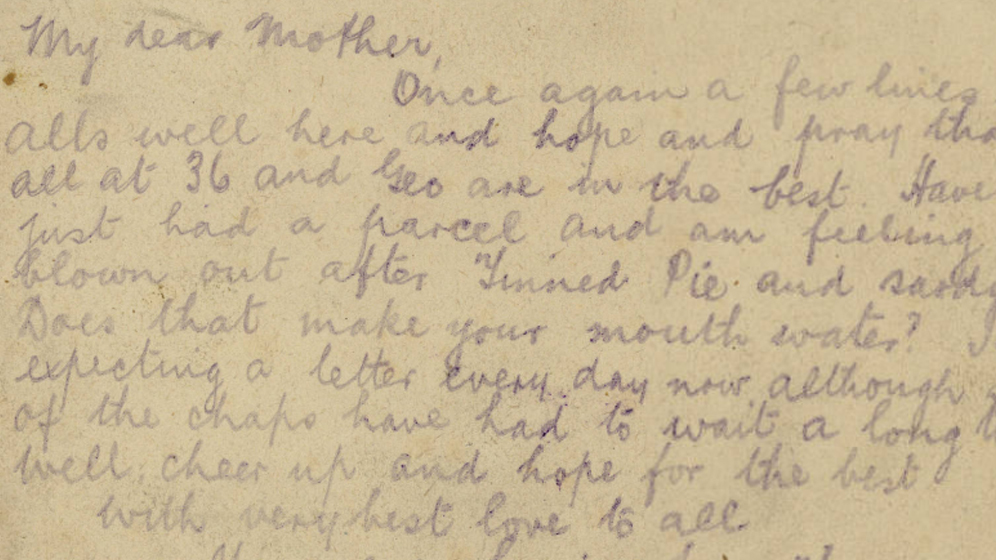 My dear Mother,
Once again a few lines
Alls well here and hope and pray tha
all at 36 and Geo are in the best. Have
just had a parcel and am feeling
blown out after "Tinned Pie and sardy
Does that make your mouth water? I
expecting a letter every day now although
of the chaps have had to wait a long t
Well cheer up and hope for the best
With very best love to all